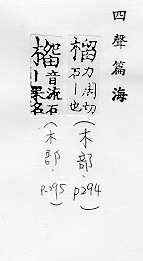 四聲篇海
榴力周切
石丨也
(木部.p294)
音流石
丨果名
(木部.p295)